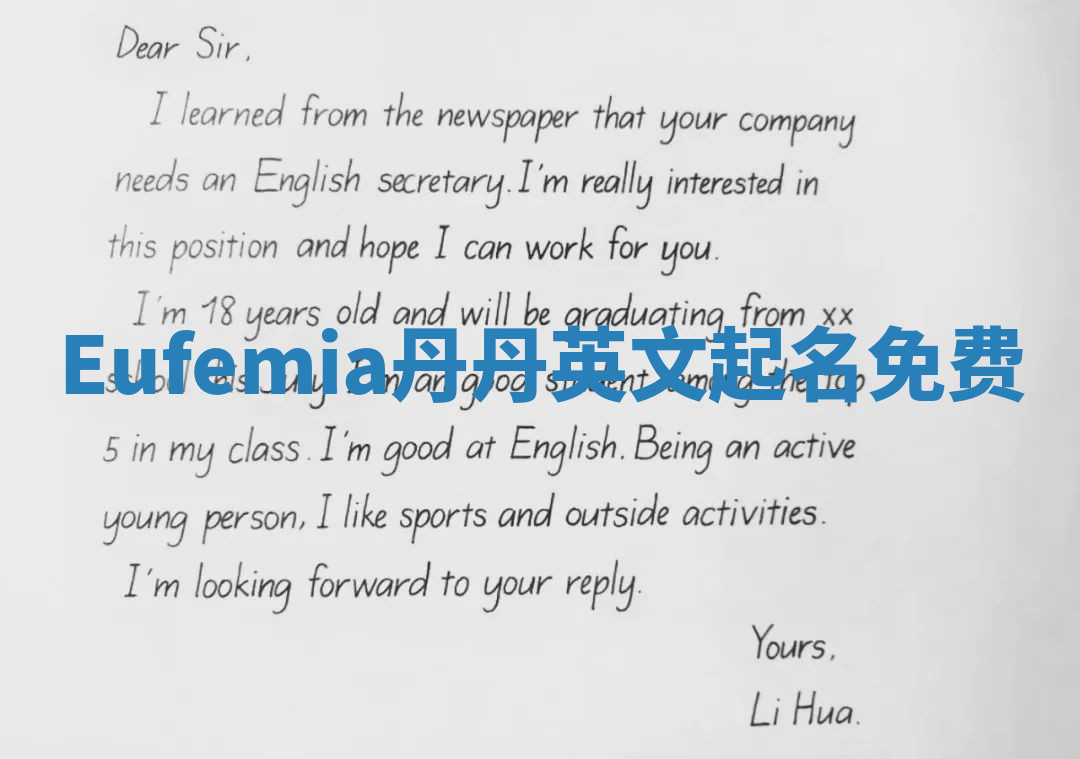 Dear Sir,
I learned from the newspaper that your company
needs an English secretary. I'm really interested in
this position and hope I can work for you.
I'm 18 years old and will be graduating from xx
Eufemia丹丹英文起名免费
school this July. I'm an good student among the top
5 in my class. I'm good at English. Being an active
young person, I like sports and outside activities.
I'm looking forward to your reply.
Yours,
Li Hua.